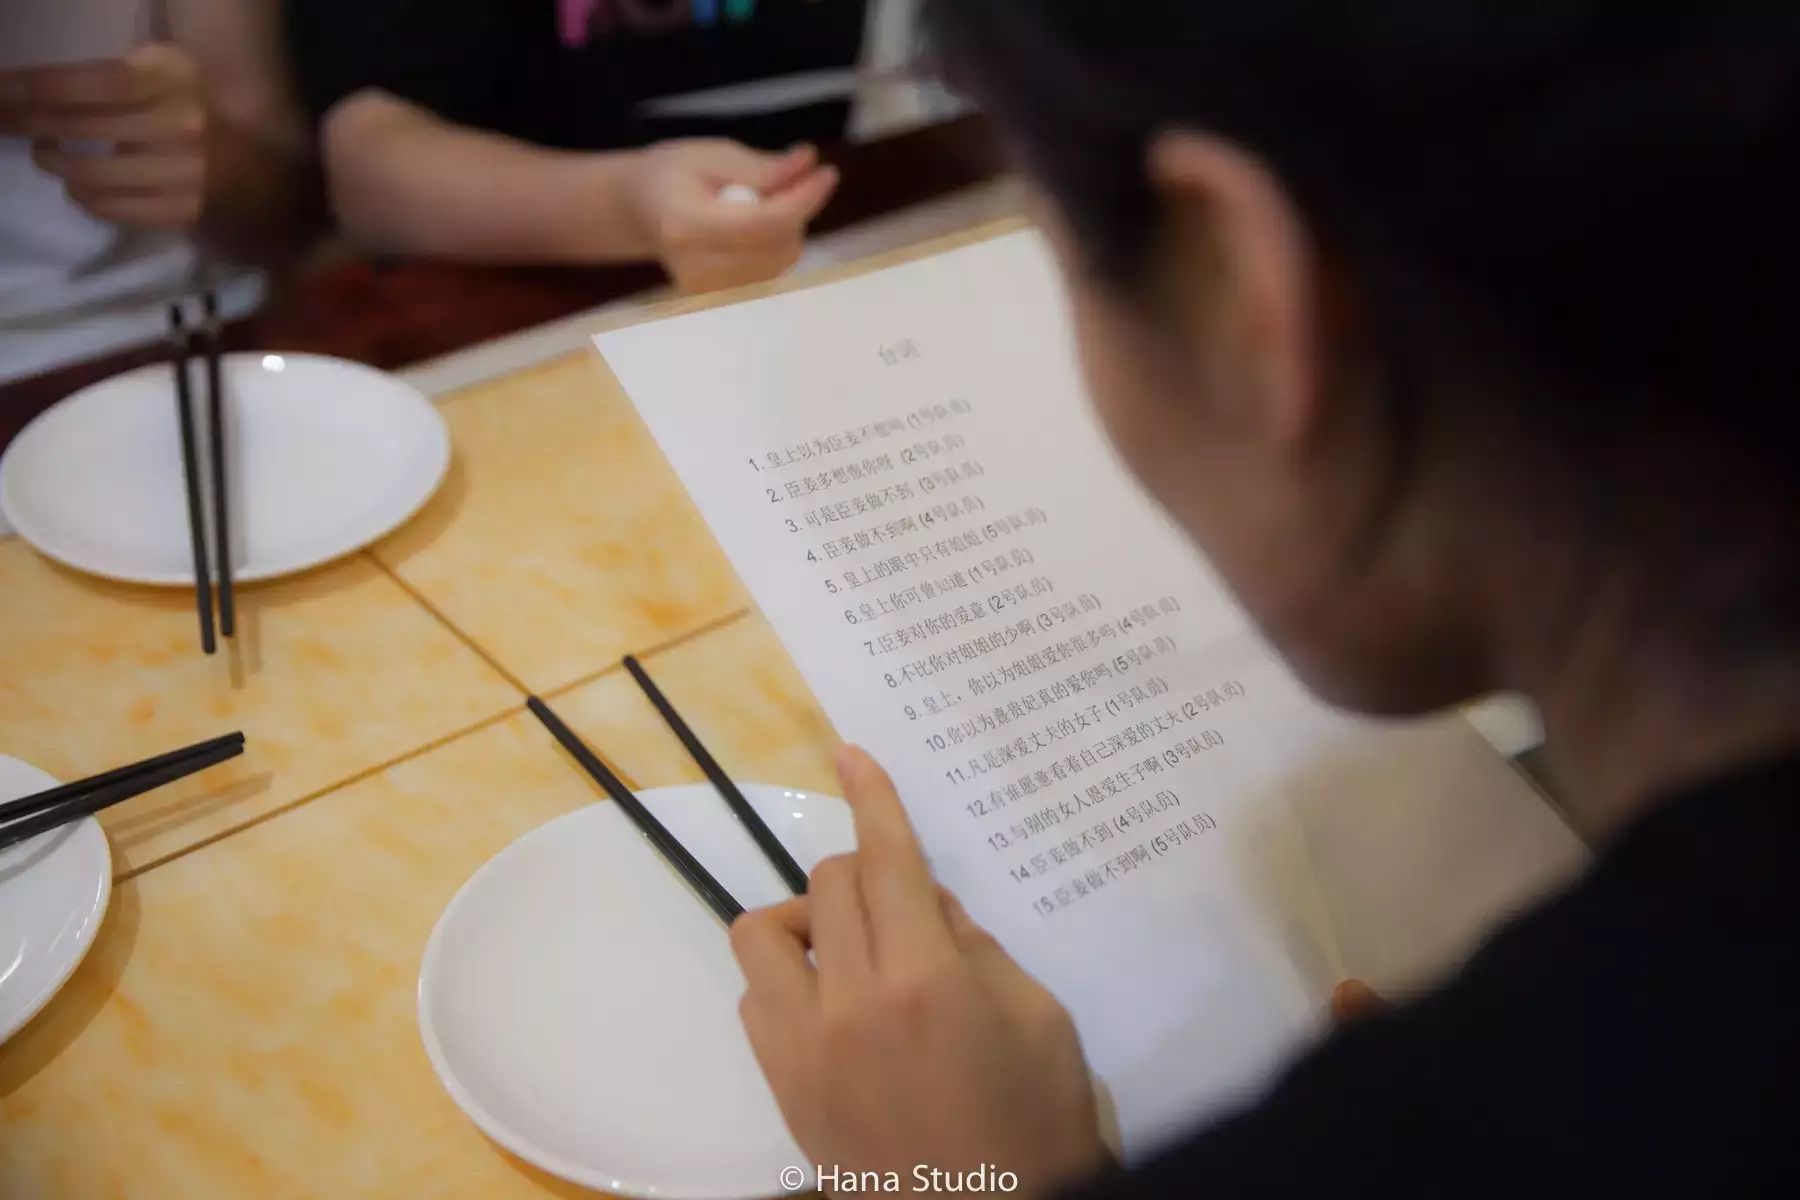 台词
1. 皇上以为臣妾不想吗 (1号队员)
2. 臣妾多想恨你呀 (2号队员)
3. 可是臣妾做不到 (3号队员)
4. 臣妾做不到啊 (4号队员)
5. 皇上的眼中只有姐姐 (5号队员)
6.皇上你可曾知道 (1号队员)
7.臣妾对你的爱意 (2号队员)
8.不比你对姐姐的少啊 (3号队员)
9. 皇上，你以为姐姐爱你很多吗 (4号队员)
10.你以为熹贵妃真的爱你吗 (5号队员)
11.凡是深爱丈夫的女子 (1号队员)
12.有谁愿意看着自己深爱的丈夫 (2号队员)
13.与别的女人恩爱生子啊 (3号队员)
14.臣妾做不到 (4号队员)
15.臣妾做不到啊 (5号队员)
© Hana Studio